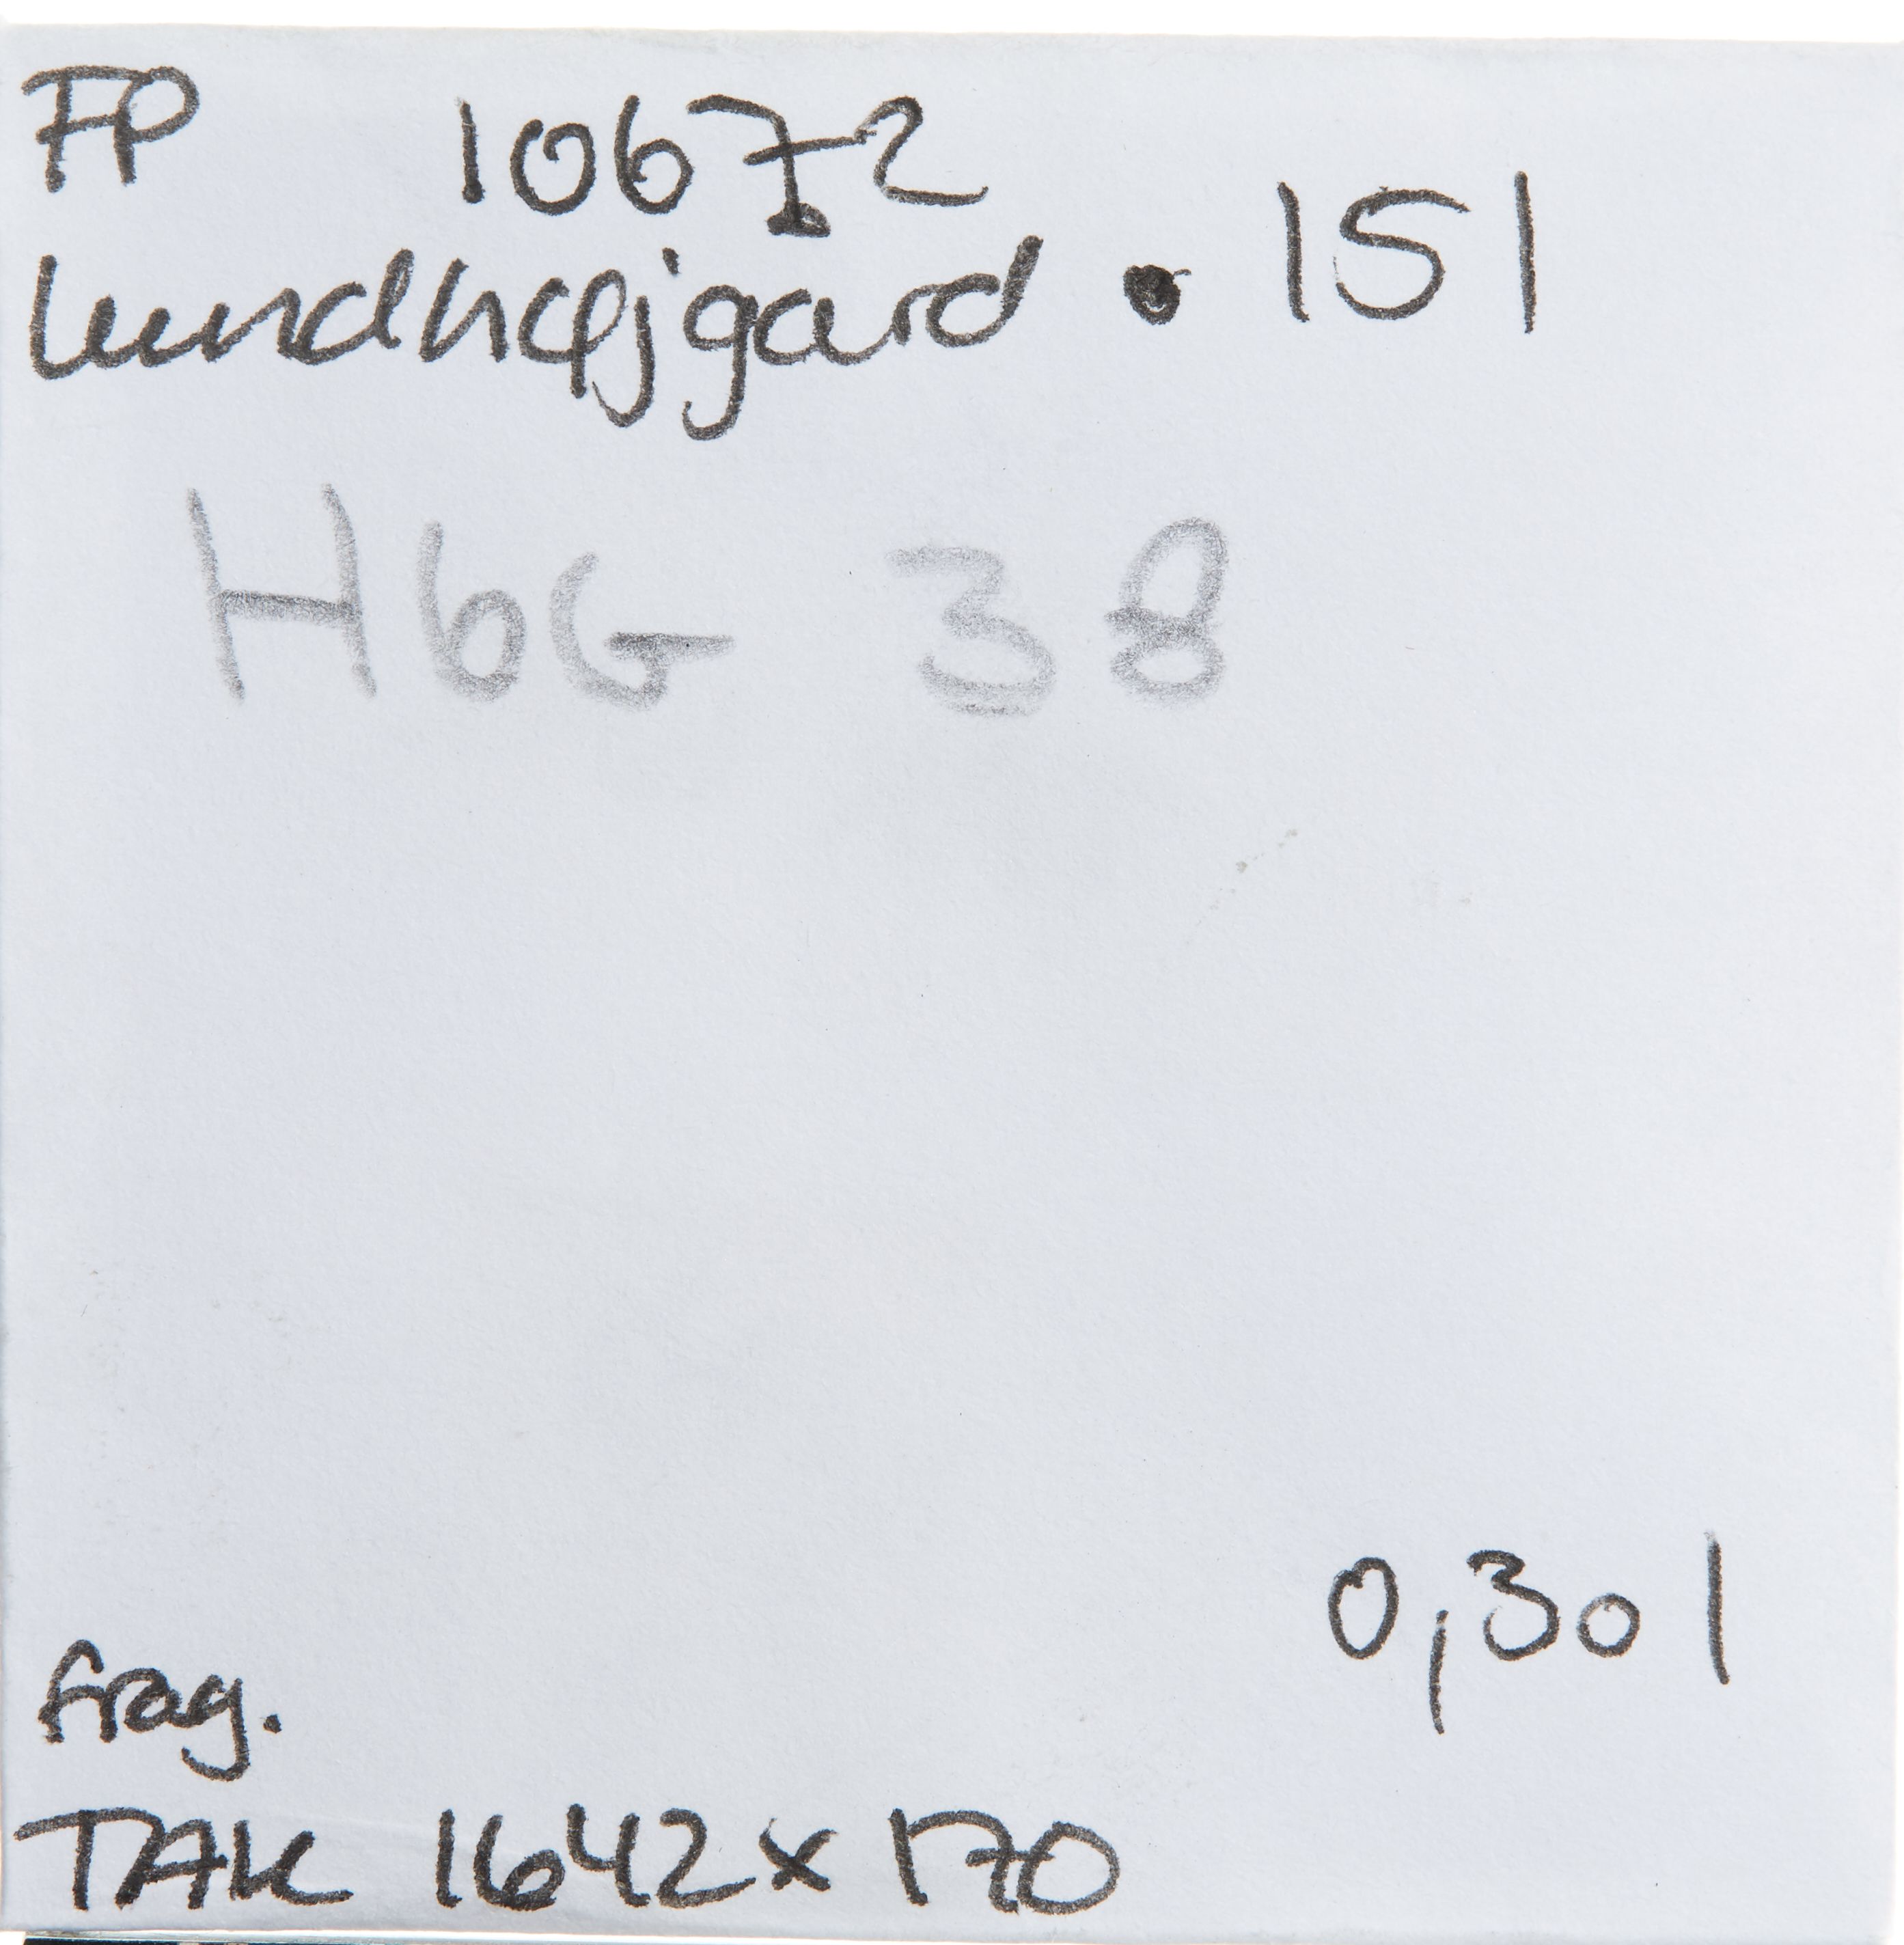 FP 10672
Lundhøjgård • 151
HbG 38
0,301
frag.
TAK 1642 x 170